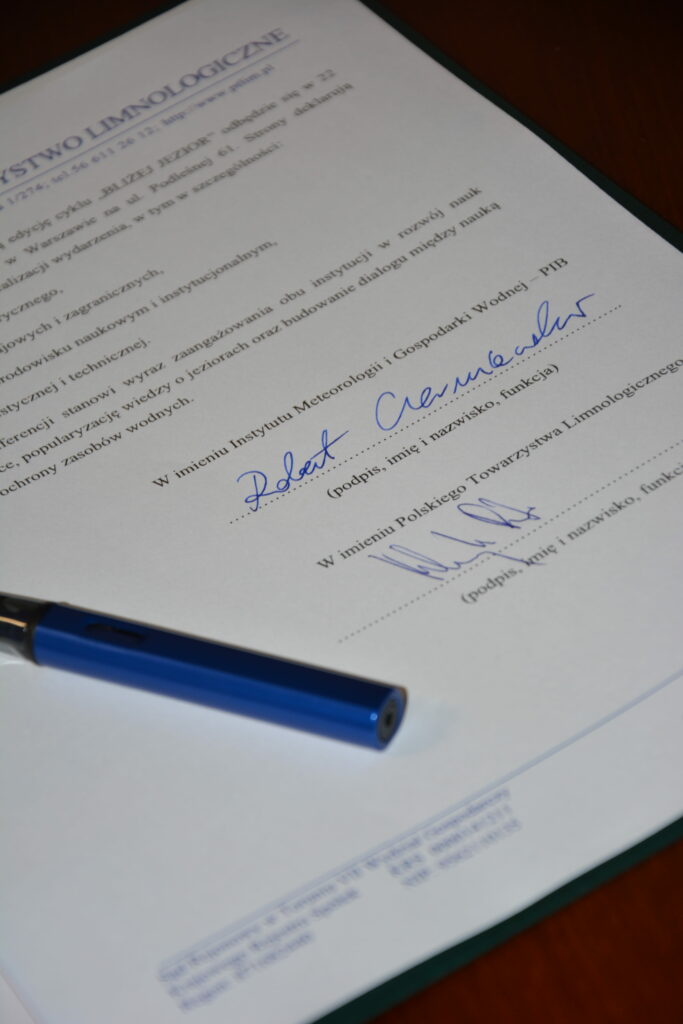 YSTWO LIMNOLOGICZNE
1/274; tel.56 611 26 12; http://www.ptlim.pl
edycję cyklu „BLIŻEJ JEZIOR” odbędzie się w 22
w Warszawie na ul. Podleśnej 61. Strony deklarują
alizacji wydarzenia, w tym w szczególności:
rycznego,
ajowych i zagranicznych,
rodowisku naukowym i instytucjonalnym,
stycznej i technicznej.
ferencji stanowi wyraz zaangażowania obu instytucji w rozwój nauk
ce, popularyzację wiedzy o jeziorach oraz budowanie dialogu między nauką
ochrony zasobów wodnych.
W imieniu Instytutu Meteorologii i Gospodarki Wodnej – PIB
Robert
(podpis, imię i nazwisko, funkcja)
W imieniu Polskiego Towarzystwa Limnologicznego
(podpis, imię i nazwisko, funkcj